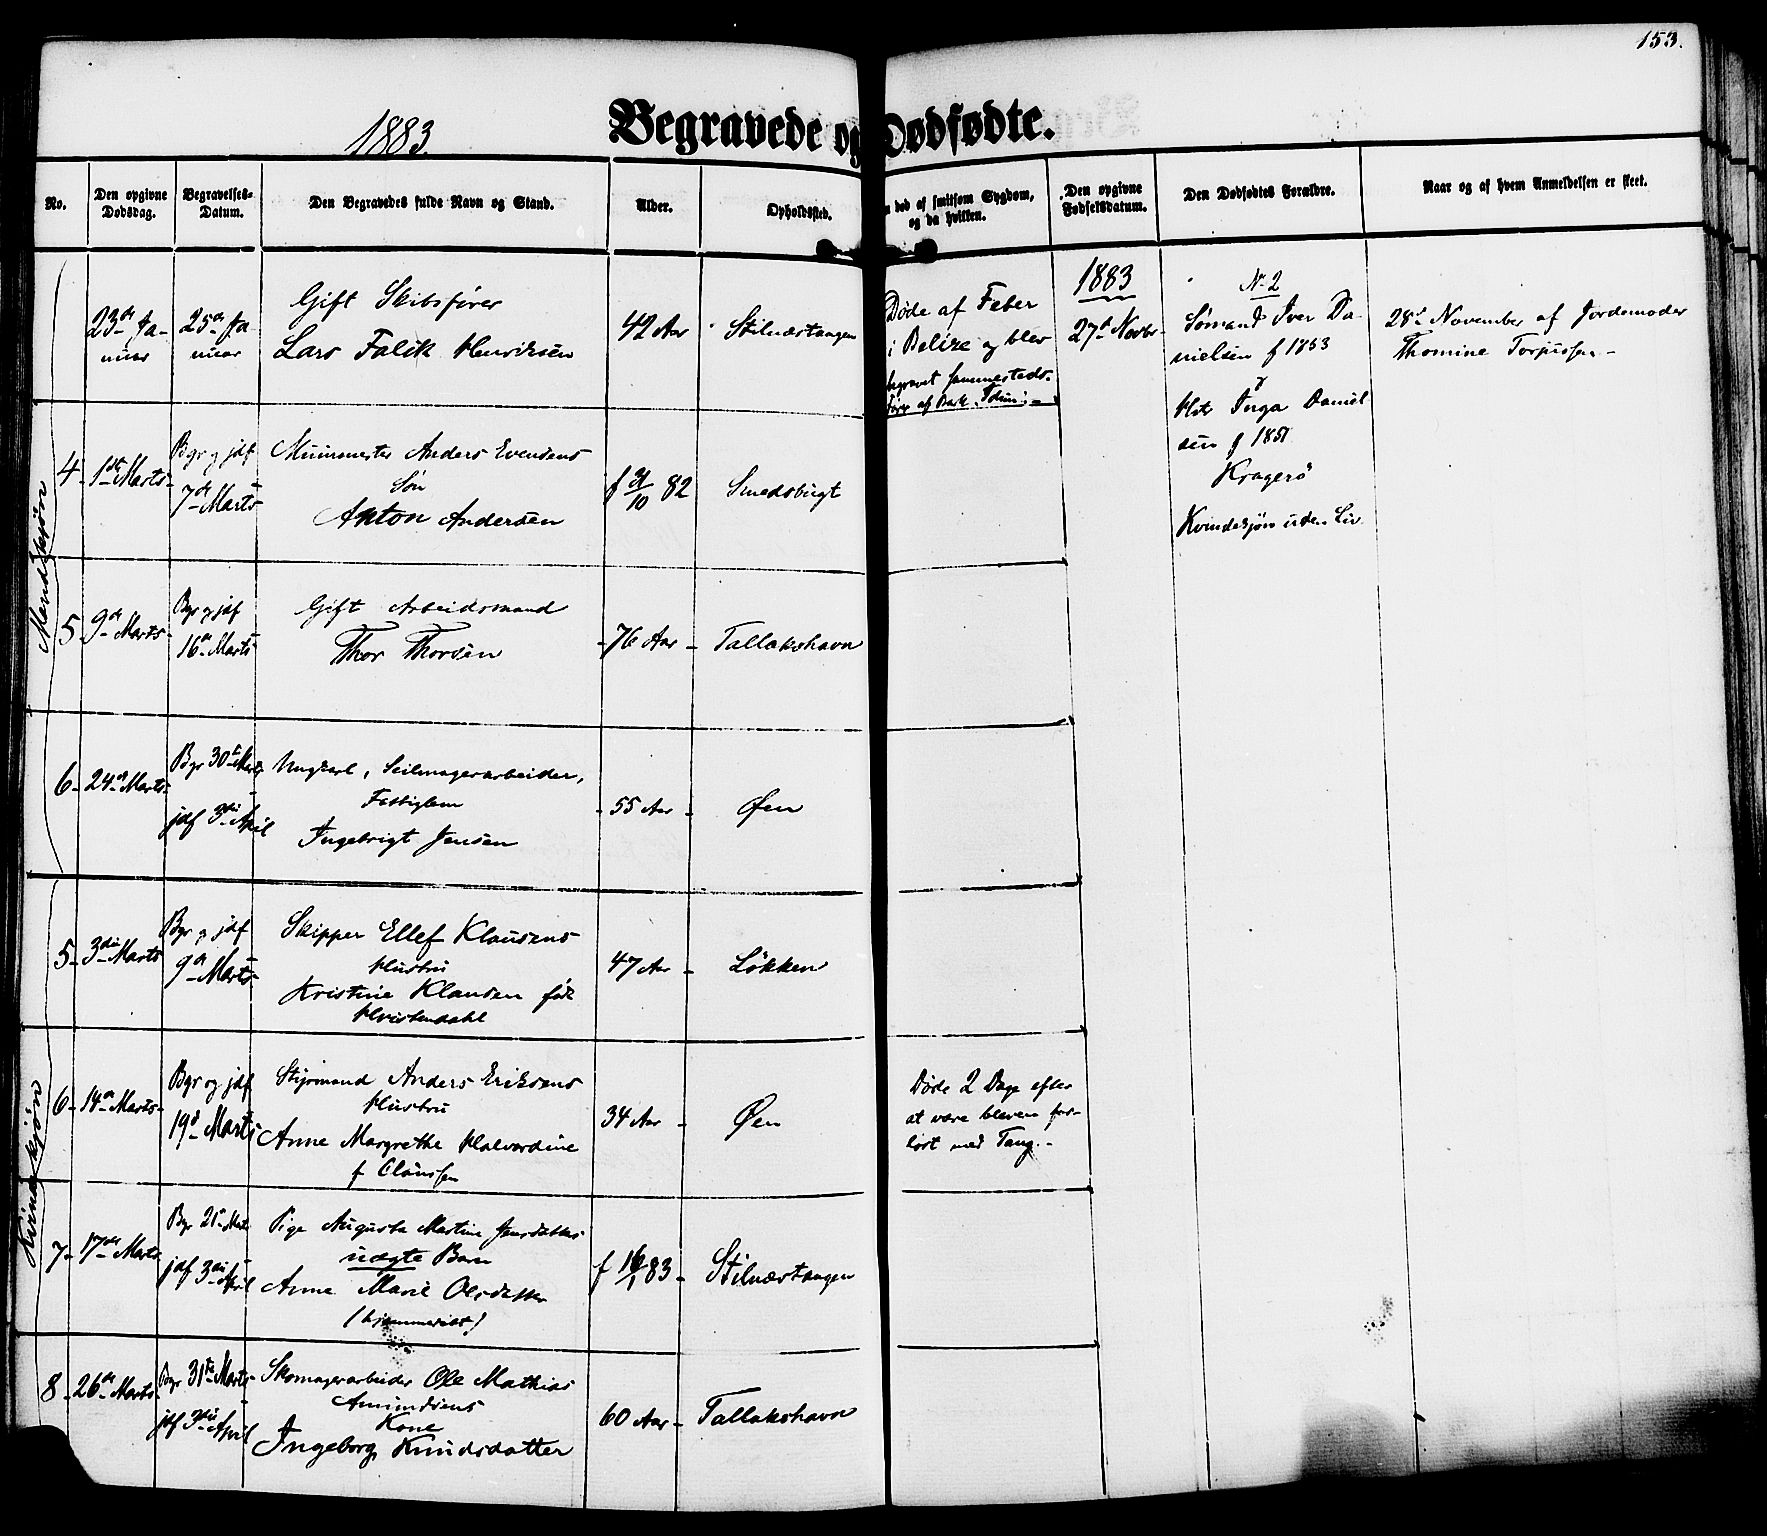 153.
1883.
Begravede og Dødfødte.
No.
Den opgivne
Dødsdag.
Begravelses-
Datum.
Den Begravedes fulde Navn og Stand.
Alder.
Opholdssted.
død af smitsom Sygdom,
og da hvilken.
Den opgivne
Fødselsdatum.
Den Dødfødtes Forældre.
Naar og af hvem Anmeldelsen er skeet.
Mandkjøn
23de Ja-
nuar
25de Ja
nuar
Gift Skibsfører
Lars Falck Henriksen
42 Aar
Stilnæstangen
Døde af Feber
i Belize og blev
begravet sammesteds.
Fører af Bark
1883
27de Novbr
No 2
Sømand Iver Da-
nielsen f 1853
Hstr Inga Daniel
sen f 1851
Kragerö
Kvindekjön uden Liv.
28de November af Jordemoder
Thomine Torjussen -
4 - 1ste Marts -
Bgr og jdf
7de Marts -
Muurmester Anders Evensens
Søn
Anton Andersen
f 31/10 82
Smedsbugt
5 - 9de Marts -
Bgr og jdf
16de Marts -
Gift Arbeidsmand
Thor Thorsen
- 76 Aar -
Tallakshavn
6 - 24de Marts -
Bgr 30te Marts
jdf 3die April
Ungkarl, Seilmagerarbeider,
Fattiglem
Ingebrigt Jensen
- 55 Aar -
Øen
Kvindekjøn
5 - 3die Marts
Bgr og jdf
9de Marts -
Skipper Ellef Klausens
Hustru
Kristine Klausen født
Hvistendahl
47 Aar -
Løkken
6 - 14de Marts -
Bgr og jdf
19de Marts -
Styrmand Anders Eriksens
Hustru
Anne Margrethe Halvardine
f Claussen
34 Aar -
Øen
Døde 2 Dage efter
at være bleven for-
løst med Tang. -
7 - 17de Marts
Bgr 21de Marts
jdf 3die April
Pige Augusta Martine Jensdatters
uægte Barn
Anne Marie Olsdatter
(hjemmedøbt)
f 16/1 83 -
Stilnæstangen
8 - 26de Marts -
Bgr 31te Marts -
jdf 3die April
Skomagerarbeider Ole Mathias
Amundsens
Kone
Ingeborg Knudsdatter
60 Aar -
Tallakshavn